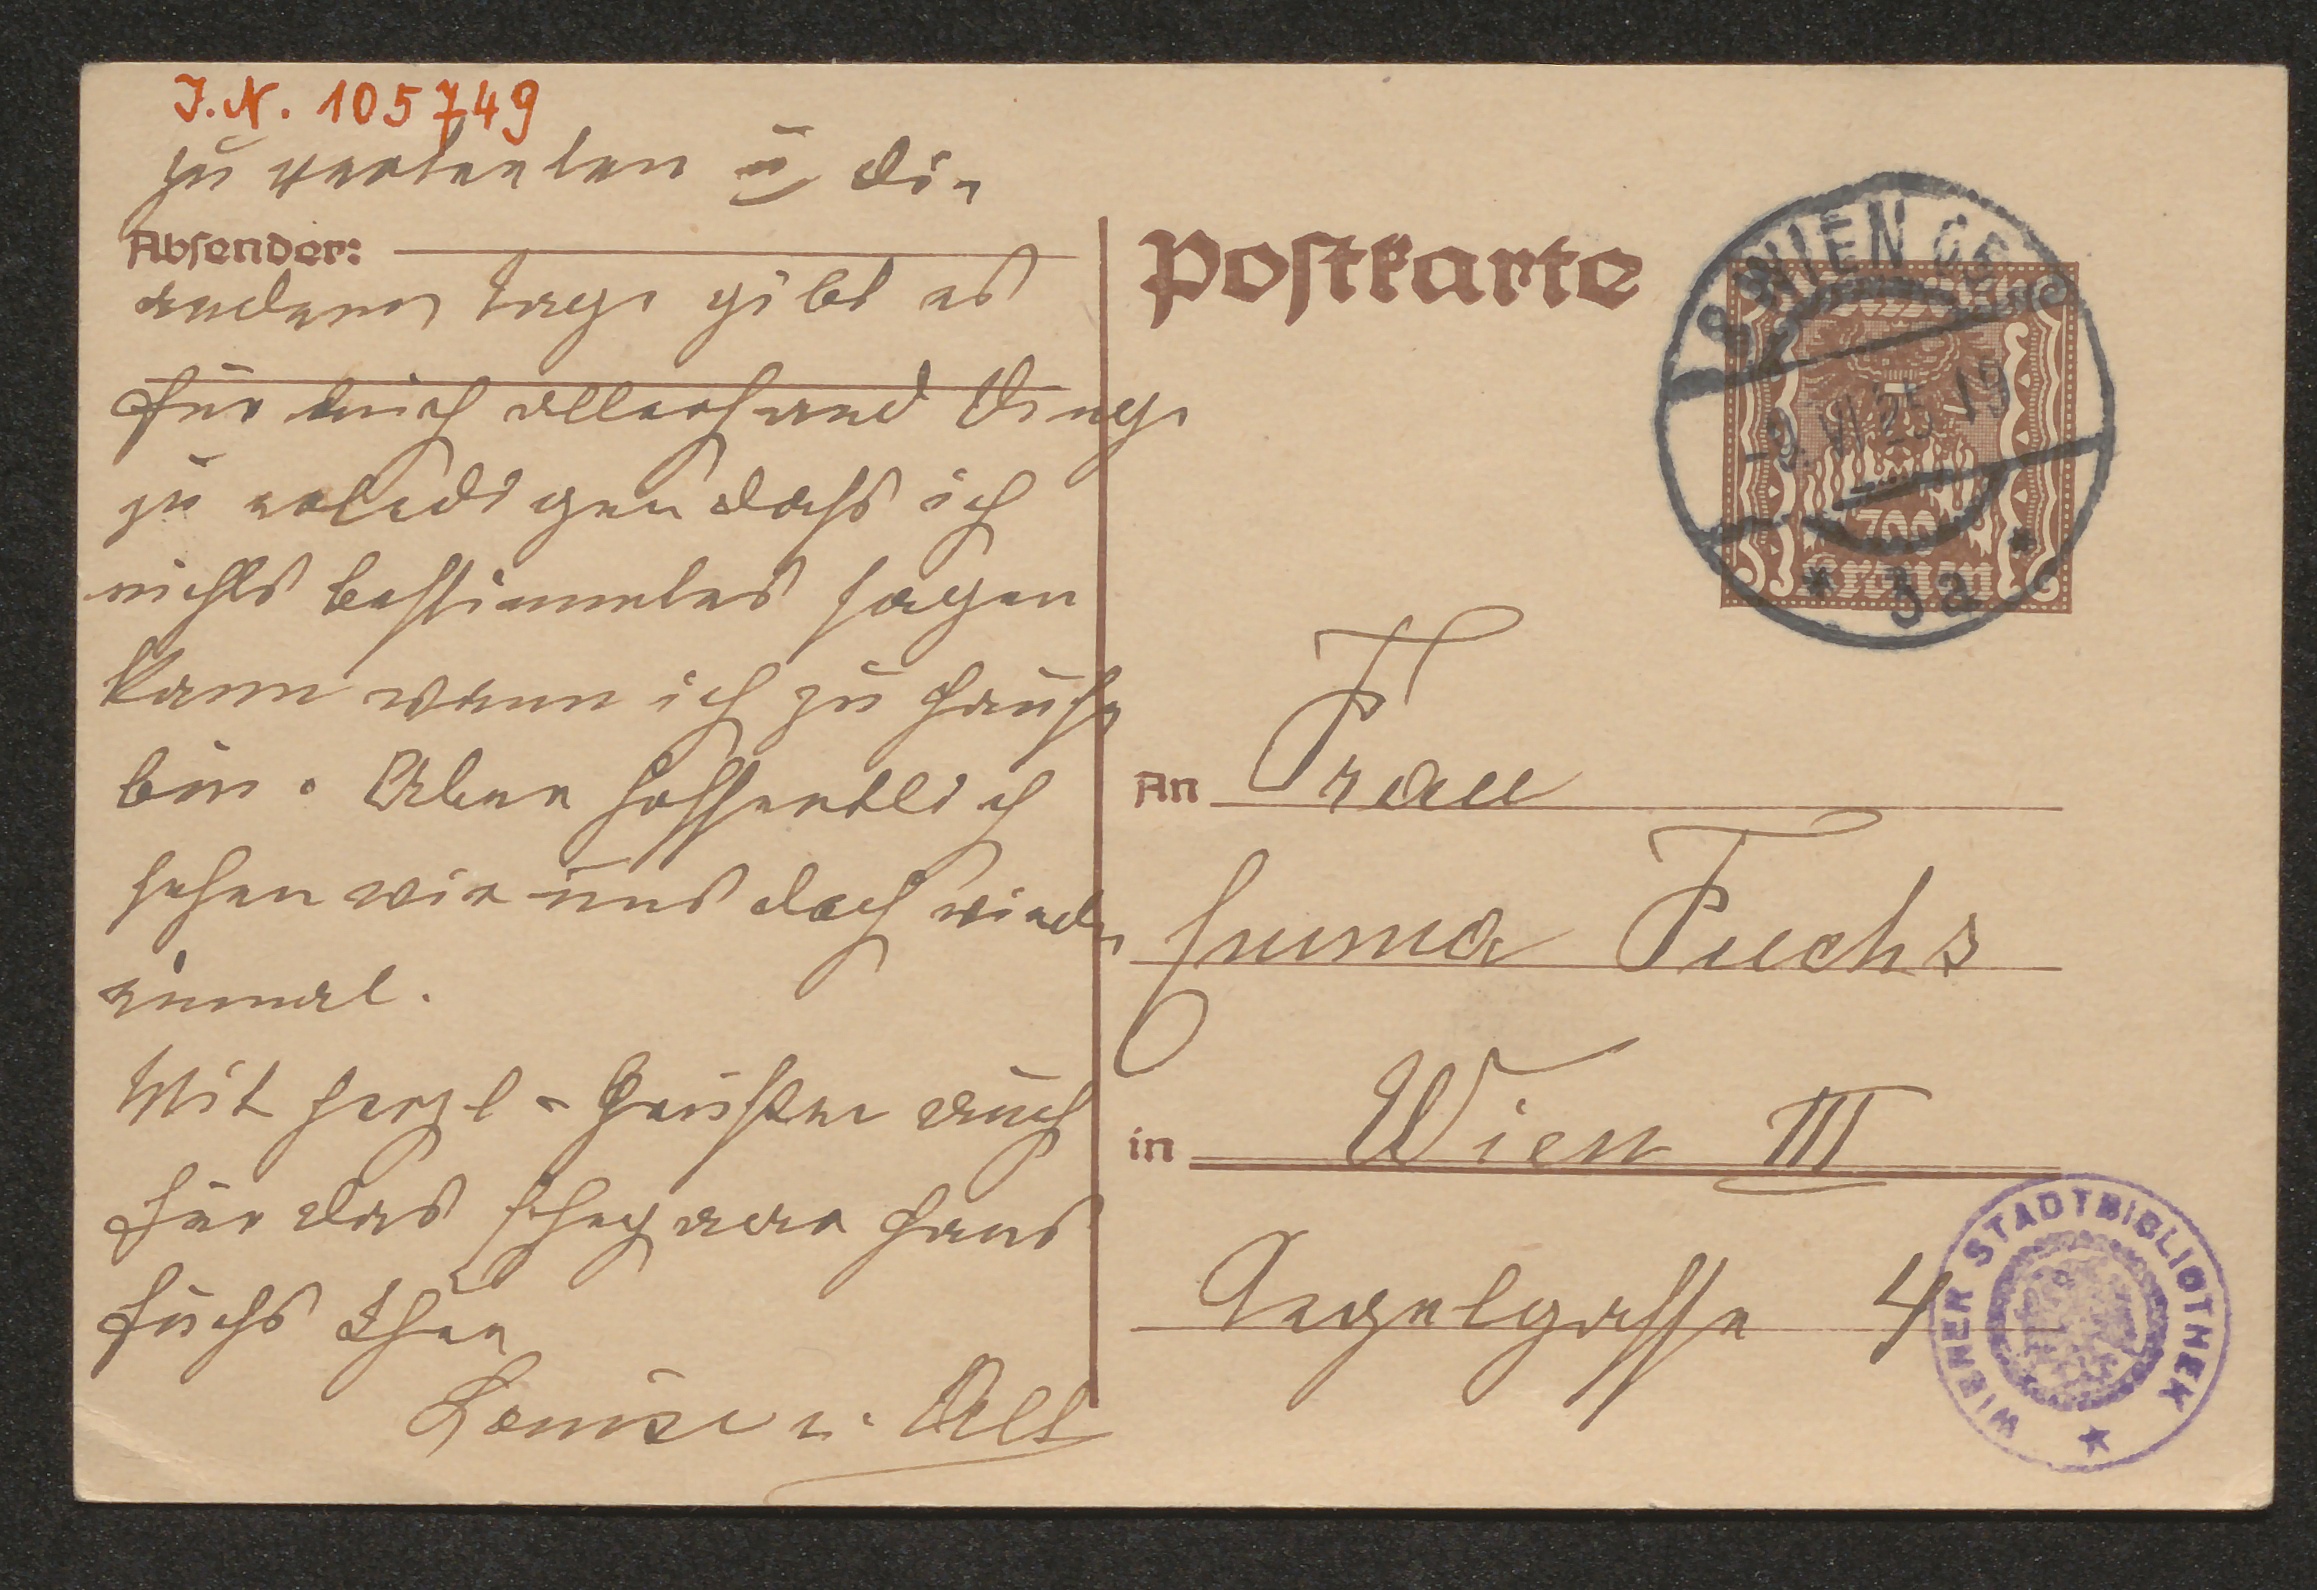 J.N. 105749
zu vertreten u die
Absender:
anderen Tage gibt es
für mich allerhand Dinge
zu erledigen dass ich
nichts bestimmtes sagen
kann wann ich zu Hause
bin. Aber hoffentlich
sehen wir uns doch wieder
einmal.
Mit herzl. Grüssen auch
für das Ehepaar Hans
Fuchs Ihre
Louise v. Alt
Postkarte
WIEN
9.VI 25
700
Kronen
* 3a *
An Frau
Emma Fuchs
in Wien III
gasse 4
WIENER STADTBIBLIOTHEK